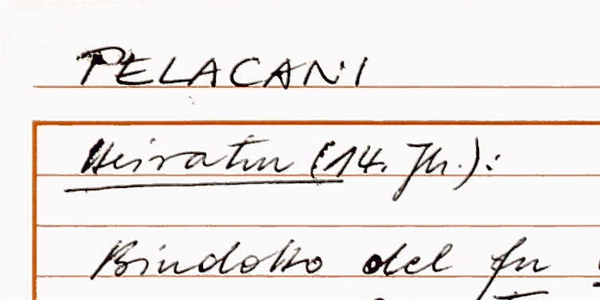 PELACANI
Heiraten (14. Jh.):
Bindotto del fu